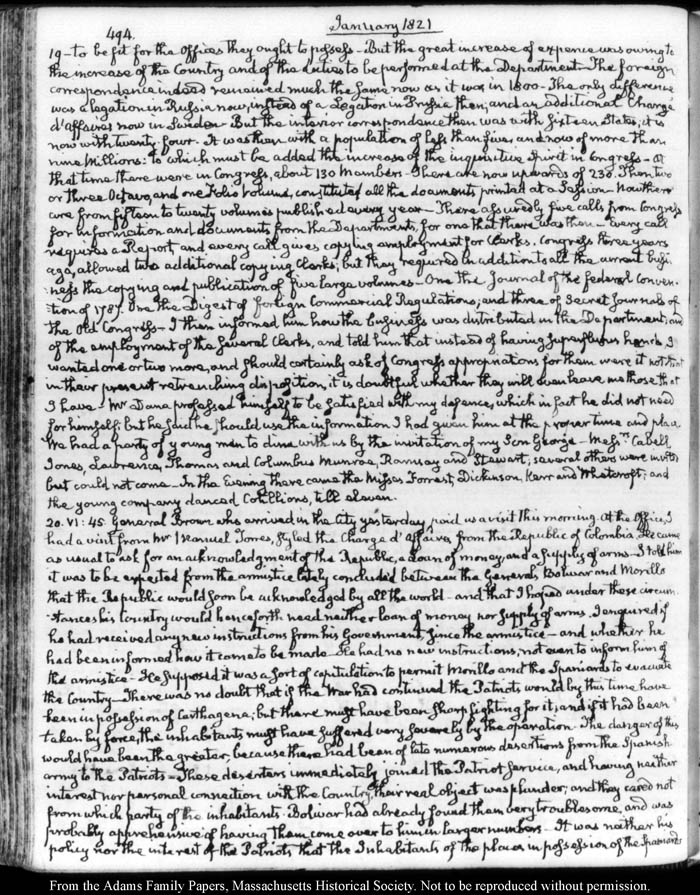 494.
January 1821
19 – to be fit for the Offices they ought to possess – But the great increase of expence was owing to
the increase of the Country and of the duties to be performed at the Department – The foreign
correspondence indeed remained much the same now as it was in 1800 – The only difference
was a legation in Russia now, instead of a Legation in Prussia then; and an additional Chargé
d'affaires now in Sweden – But the interior correspondence then was with sixteen States; it is
now with twenty four – It was then with a population of less than five, and now of more than
nine Millions: to which must be added the increase of the inquisitive spirit in Congress – At
that time there were in Congress, about 130 Members – There are now upwards of 230. Then two
or three Octavo, and one Folio volume, constituted all the documents printed at a Session – Now there
are from fifteen to twenty volumes published every year – There are assuredly five calls from Congress
for information and documents from the Departments, for one that there was then – Every call
requires a Report, and every call gives copying employment for Clerks. Congress three years
ago, allowed two additional copying Clerks; but they required in addition to all the current busi-
ness the copying and publication of five large volumes – One the Journal of the federal Conven-
tion of 1787. One the Digest of foreign Commercial Regulations; and three of Secret Journals of
the Old Congress – I then informed him how the business was distributed in the Department; and
of the employment of the several Clerks, and told him that instead of having superfluous hands, I
wanted one or two more, and should certainly ask of Congress appropriations for them were it not that
in their present retrenching disposition, it is doubtful whether they will even leave me those that
I have – Mr Dana professed himself to be satisfied with my defence, which in fact he did not need
for himself; but he said he should use the information I had given him at the proper time and place.
We had a party of young men to dine with us by the invitation of my Son George – Messrs Cabell,
Jones, Lawrence, Thomas and Columbus Munroe, Ramsay and Stewart; several others were invited
but could not come – In the Evening there came the Misses Forrest, Dickinson, Kerr and Whetcroft; and
the young company danced Cotillions, till eleven.
20. VI: 45. General Brown who arrived in the City yesterday, paid us a visit this morning. At the Office, I
had a visit from Mr Manuel Torres, styled the Chargé d'affaires from the Republic of Colombia. He came
as usual to ask for an acknowledgment of the Republic, a loan of money, and a supply of arms – I told him
it was to be expected from the armistice lately concluded between the Generals Bolivar and Morillo
that the Republic would soon be acknowledged by all the world – and that I hoped under these circum-
stances his Country would henceforth need neither loan of money nor supply of arms. I enquired if
he had received any new instructions from his Government, since the armistice – and whether he
had been informed how it came to be made – He had no new instructions, not even to inform him of
the armistice – He supposed it was a sort of capitulation to permit Morillo and the Spaniards to evacuate
the Country – There was no doubt that if the War had continued the Patriots would by this time have
been in possession of Carthagena; but there must have been sharp fighting for it, and if it had been
taken by force, the inhabitants must have suffered very severely by the operation. The danger of this
would have been the greater, because there had been of late numerous desertions from the Spanish
army to the Patriots – These deserters immediately joined the Patriot service, and having neither
interest nor personal connection with the Country, their real object was plunder; and they cared not
from which party of the inhabitants. Bolivar had already found them very troublesome, and was
probably apprehensive of having them come over to him in larger numbers – It was neither his
policy nor the interest of the Patriots that the Inhabitants of the places in possession of the Spaniards
From the Adams Family Papers, Massachusetts Historical Society. Not to be reproduced without permission.